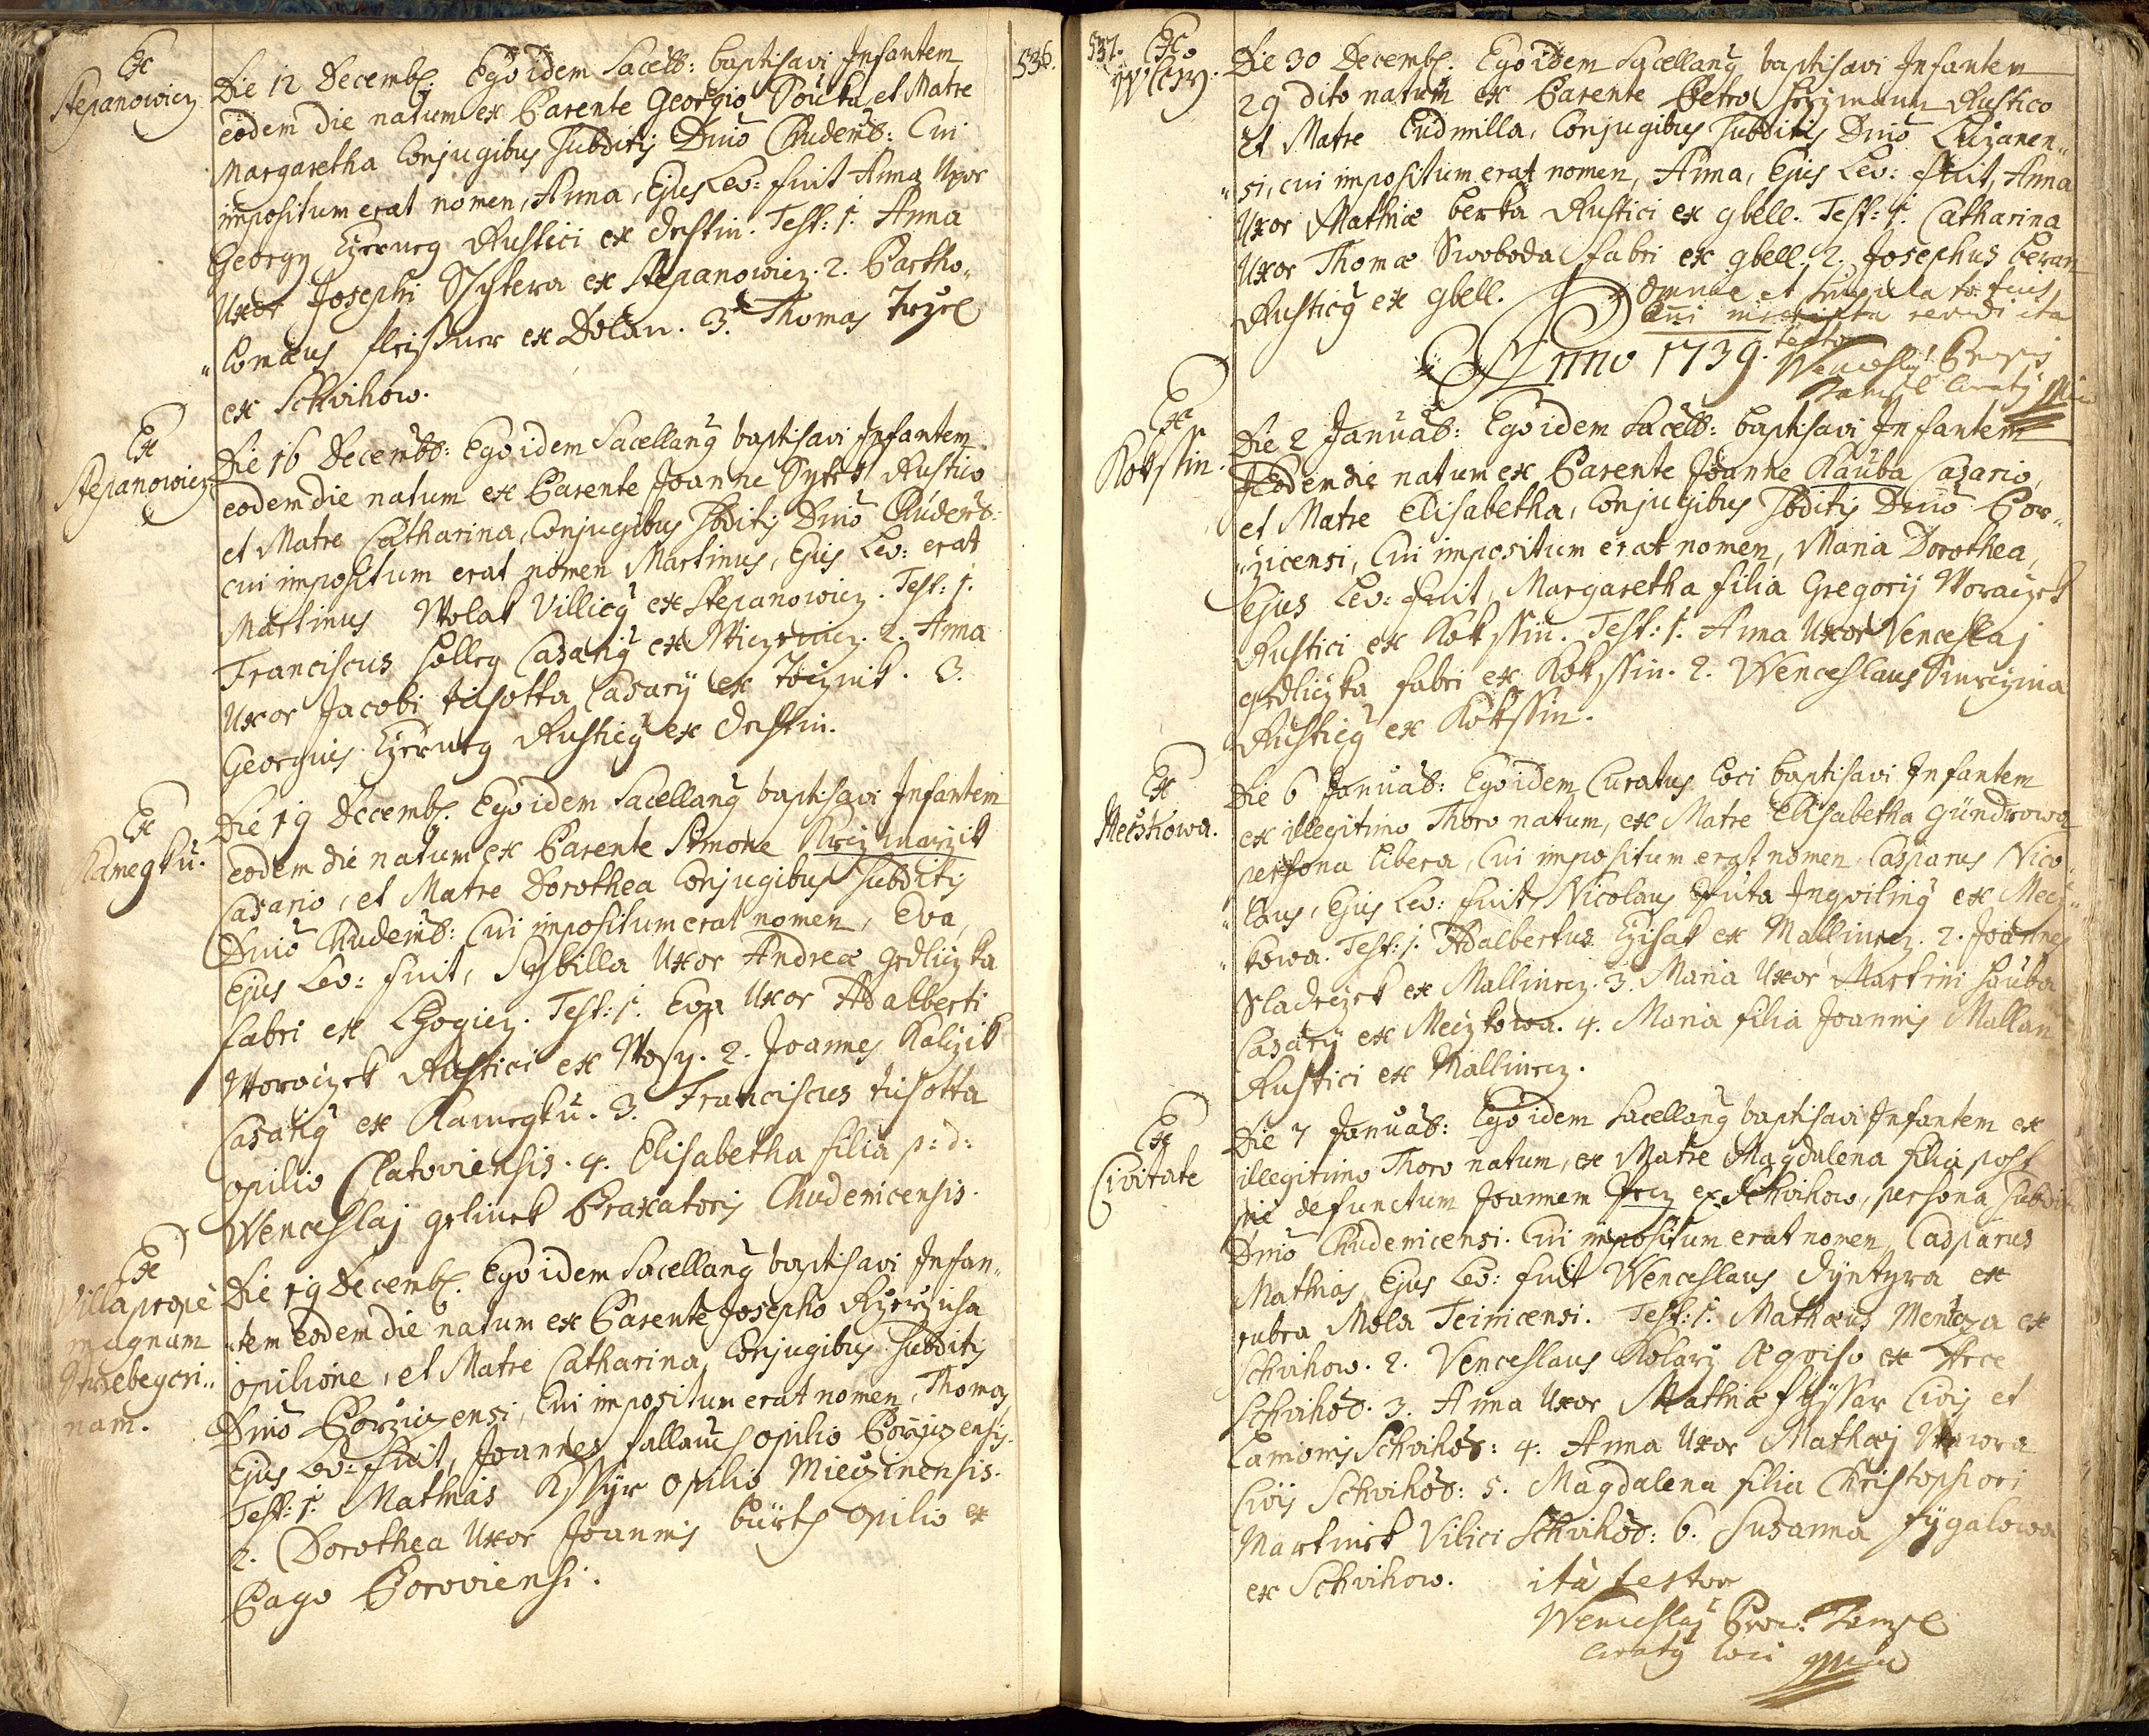 536.
Ex
Stepanowicz
Die 12 Decemb. Ego idem Sacelb: baptisavi Infantem
eodem die natum ex Parente Georgio Soucka, et Matre
Margaretha Conjugibus Subditis Dnio Chudenb: Cui
impositum erat nomen, Anna, Ejus Lev: fuit Anna Uxor
Georgy Czerneg Rustici ex Destin. Test: 1. Anna
Uxor Josephi Sykera ex Stepanowicz. 2. Bartho„
„lomæus fleissner ex Dolan. 3. Thomas
ex Schvihow.
Ex
Stepanowicz
Die 16 Decembb: Ego idem Sacellang baptisavi Infantem
eodem die natum ex Parente Joanne Rustico
et Matre Catharina, Conjugibus Sbditis Dnio Chudenb:
cui impositum erat nomen Martinus, Ejus Lev: erat
Martinus Wolak Villicg ex Stepanowicz. Test: 1.
Franciscus Casarig ex 2. Anna
Uxor Jacobi tusotta Casarij ex Tocznik. 3.
Georgius Czerneg Rusticg ex Destin.
Ex
Kamegku.
Die 19 Decemb. Ego idem Sacellang baptisavi Infantem
eodem die natum ex Parente Simone
Casario, et Matre Dorothea Conjugibus Subditis
Dnio Chudenb: Cui impositum erat nomen, Eva,
Ejus Lev: fuit, Sybilla Uxor Andreæ Grdliczka
fabri ex Test: 1. Eva Uxor Adalberti
Woraczek Rustici ex Wosy. 2. Joannes Kalczik
Casarig ex Kamegku. 3. Franciscus tusotta
opilio Clatoviensis. 4. Elisabetha filia p: d:
Wenceslaj Gelinek Braxatoris Chudenicensis.
Ex
Villa prope
magnam
Petrzebegcri„
nam.
Die 19 Decemb. Ego idem Sacellang baptisavi Infan„
„tem eodem die natum ex Parente Josepho
opilione, et Matre Catharina, Conjugibus Subditis
Dnio Borziczensi, Cui impositum erat nomen, Thomas,
Ejus Lev: fuit, Joannes opilio Borziczensis.
Test: 1. Mathias opilio Mieczinensis.
2. Dorothea Uxor Joannis opilio ex
Pago Boroviensi.
537.
Ex
Wlczy.
Die 30 Decemb. Ego idem Sacellang baptisavi Infantem
29 dito natum ex Parente Petro Rustico
et Matre Ludmilla, Conjugibus Subditis Dnio Luzanen„
„si, cui impositum erat nomen, Anna, Ejus Lev: fuit, Anna
Uxor Mathiæ Berka Rustici ex gbell. Test: 1. Catharina
Uxor Thomæ Swoboda fabri ex gbell. 2. Josephus Beran
Rusticg ex gbell.
Omnia et singula
testor
Anno 1739.
Ex
Kokssin.
Die 2 Januab: Ego idem Sacelb: baptisavi Infantem
Eodem die natum ex Parente Joanne Kauba Casario,
et Matre Elisabetha, Conjugibus Sbditis Dnio Bor„
„zicensi, Cui impositum erat nomen, Maria Dorothea,
Ejus Lev: fuit, Margaretha filia Gregorij Woraczek
Rustici ex Kokssin. Test: 1. Anna Uxor Venceslaj
grdliczka fabri ex Kokssin. 2. Wenceslaus
Rusticg ex Kokssin.
Ex
Mecskowa.
Die 6 Januab: Ego idem Curatus Loci baptisavi Infantem
ex illegitimo Thoro natum, ex Matre Elisabetha Gundrowa
persona libera, Cui impositum erat nomen Casparus Nico„
„laus, Ejus Lev: fuit, Nicolaus Duta Inqviling ex Mecz„
„kowa. Test: 1. Adalbertus Czisak ex Mallinecz. 2. Joannes
Sladeczek ex Mallinecz. 3. Maria Uxor Martini Hauba
Casarij ex Meczkowa. 4. Maria filia Joannis Mallan
Rustici ex Mallinecz.
Ex
Civitate
Die 7 Januab: Ego idem Sacellang baptisavi Infantem ex
illegitimo Thoro natum, ex Matre Magdalena filia post
pie defunctum Joannem ex Schvihow, persona subdita
Dnio Chudenicensi. Cui impositum erat nomen, Casparus
Mathias, Ejus Lev: fuit Wenceslaus Dyntyra ex
rubra Mola Teinicensi. Test: 1. Mathæus Mentza ex
Schvihow. 2. Venceslaus Kolarz ex Arce
Schvihob. 3. Anna Uxor Mathiæ fyssar Civis et
Lanionis Schvihob: 4. Anna Uxor Mathæj Wawra
Civis Schvihob: 5. Magdalena filia Christophori
Martinek Vilici Schvihob: 6. Susanna fygalowa
ex Schvihow. ita testor
Wenceslaj
Curatg loci mpria